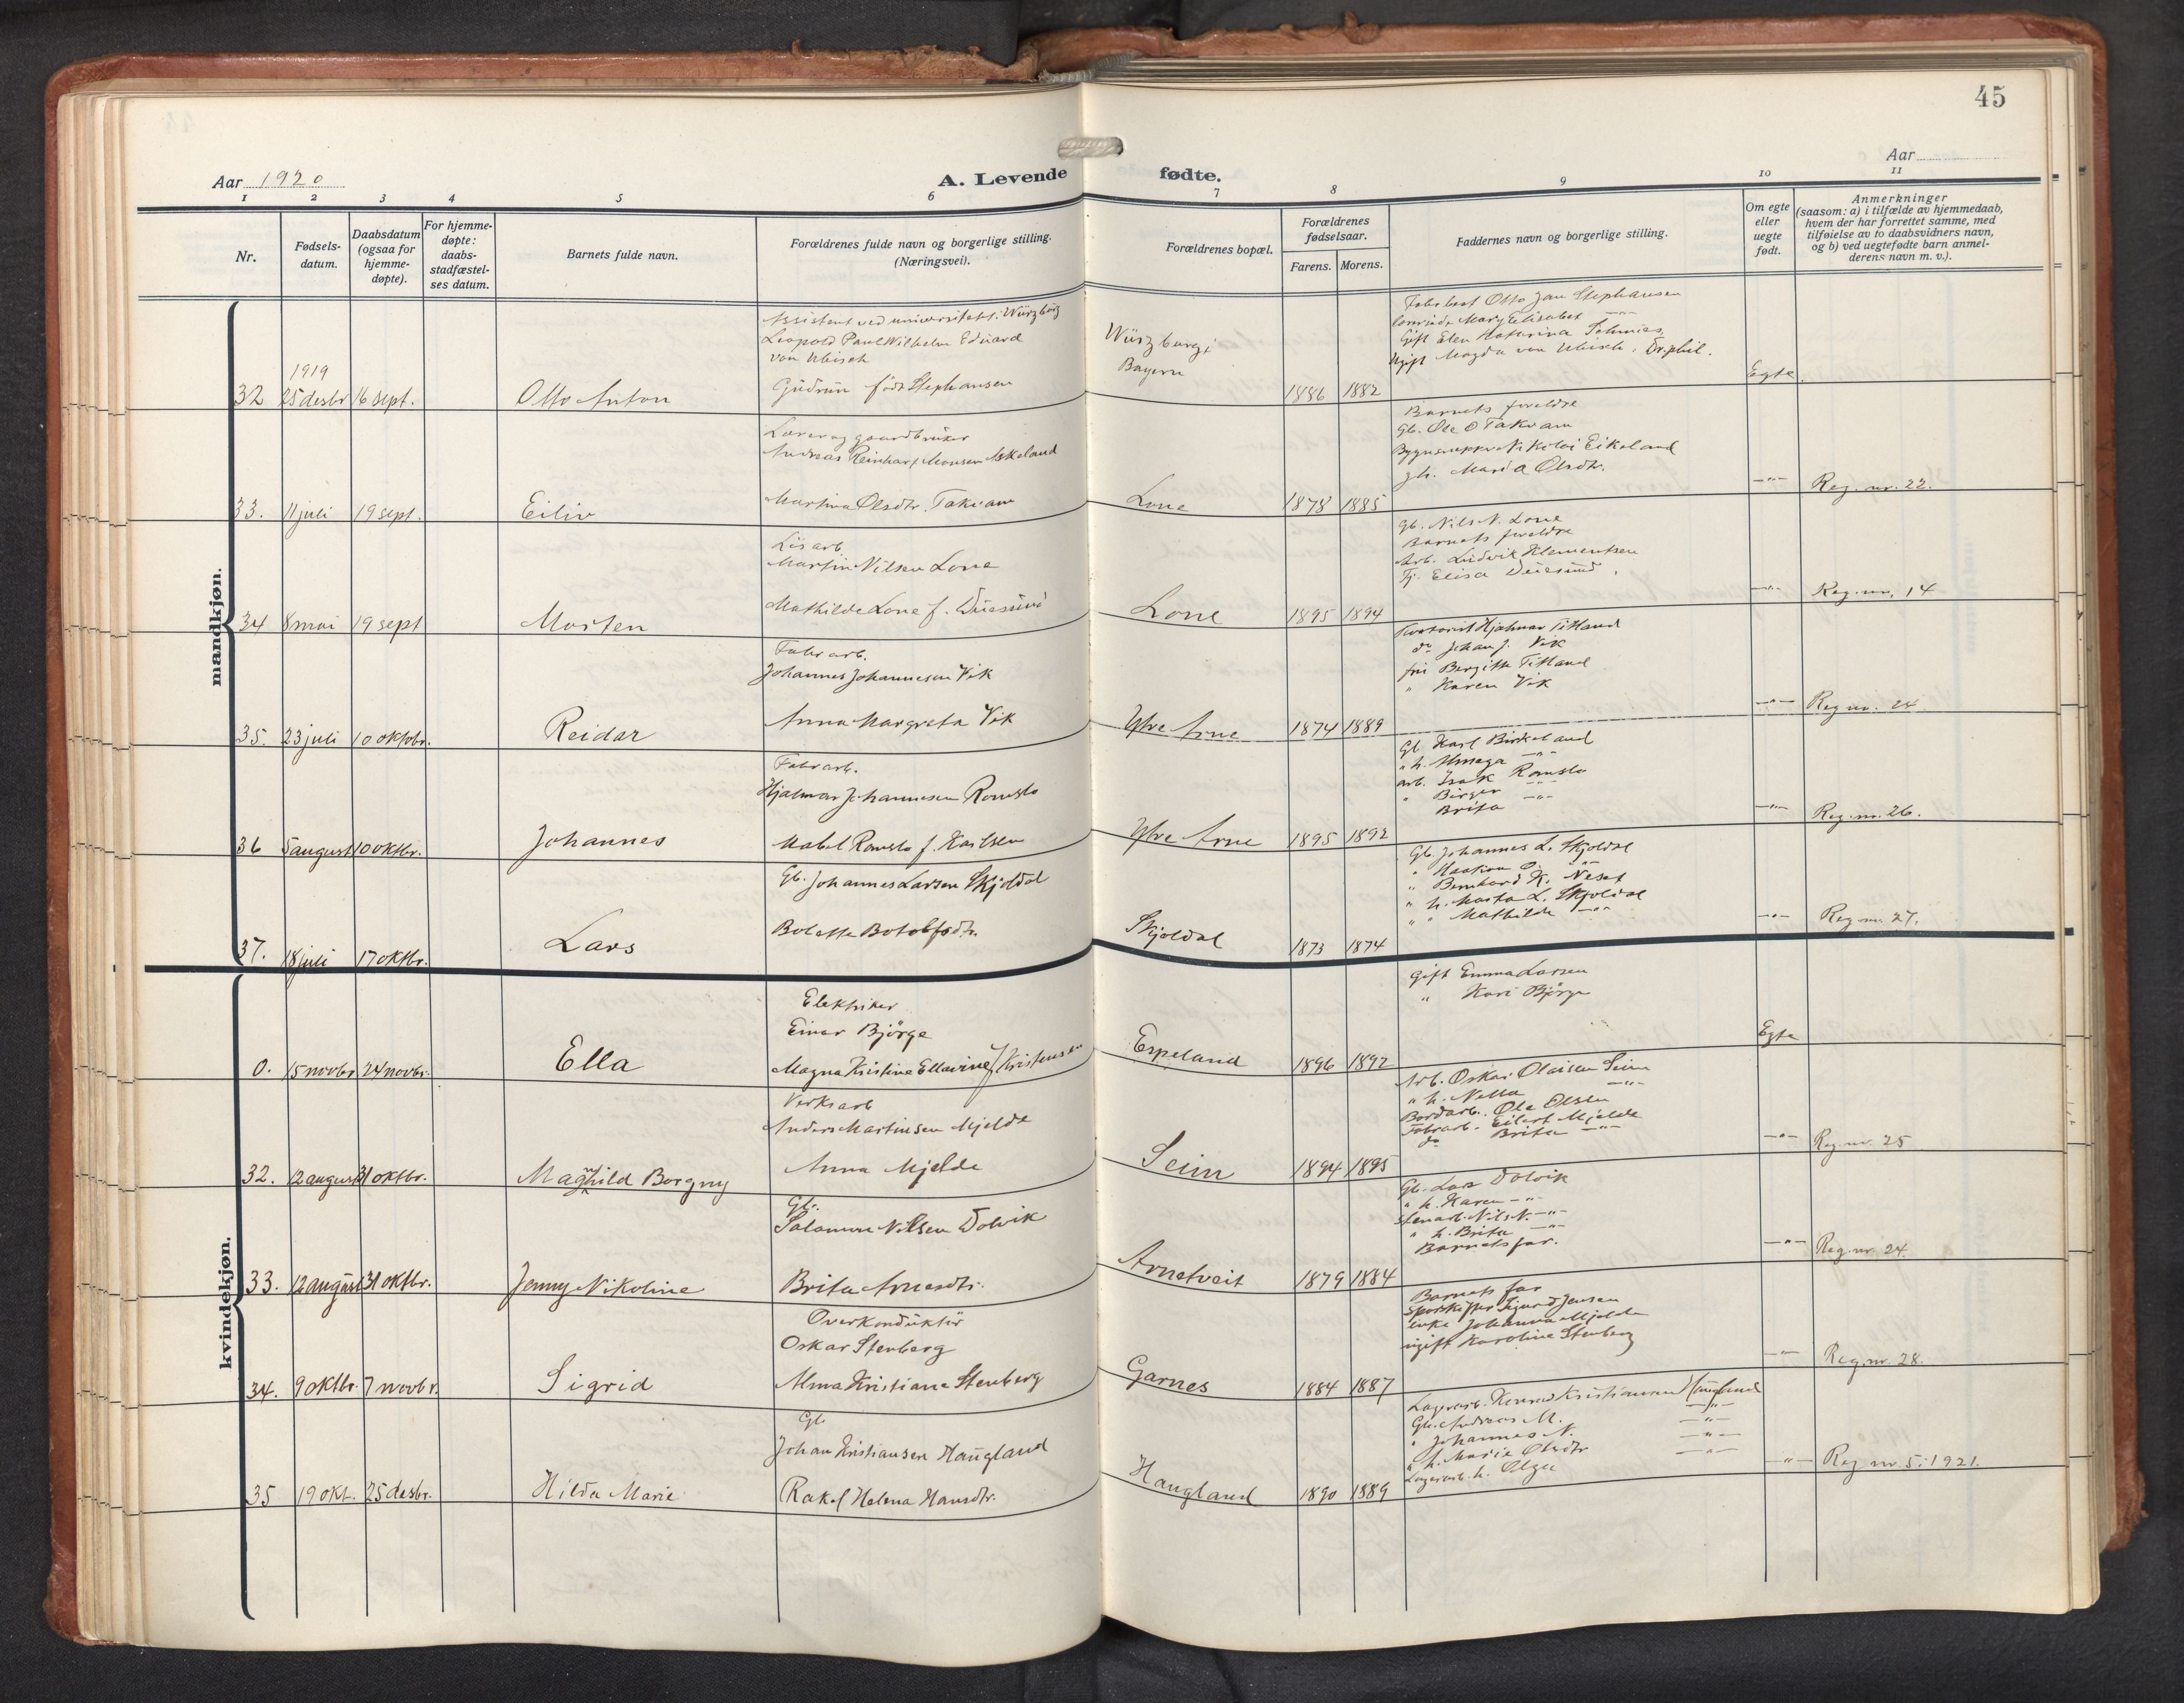 45
Aar 1920
A. Levende fødte.
Aar
1 2 3 4 5 6 7 8 9 10 11
Nr.
Fødsels-
datum.
Daabsdatum
(ogsaa for
hjemme-
døpte).
For hjemme-
døpte:
daabs-
stadfæstel-
ses datum.
Barnets fulde navn.
Forældrenes fulde navn og borgerlige stilling.
(Næringsvei).
Forældrenes bopæl.
Forældrenes
fødselsaar.
Farens. Morens.
Faddernes navn og borgerlige stilling.
Om egte
eller
uegte
født.
Anmerkninger
(saasom: a) i tilfælde av hjemmedaab,
hvem der har forrettet samme, med
tilføielse av to daabsvidners navn,
og b) ved uegtefødte barn anmel-
derens navn m. v.).
mandkjøn.
1919
32 25 desbr 16 sept.
Otto Anton
Assistent ved universitetet i Würzburg
Leopold Paul Wilhelm Eduard
von Ubisch
Gudrun født Stephansen
Würzburg i
Bayern
1886 1882
Otto Jan Stephansen
Mary Elisabet -"-
Gift Elen Katarina Schmies
Ugift Magda von Ubisch, Dr. phil.
Egte.
33. 11 juli 19 sept.
Eiliv
Lærer og gaardbruker
Andreas Reinhart Monsen Askeland
Martina Olsdtr. Takvam
Lone
1878 1885
Barnets foreldre
Gb. Ole O Takvam
Nikolai Eikeland
gh. Maria Olsdtr.
-"-
Reg. nr. 22.
34 8 mai 19 sept
Morten
Martin Nilsen Lone
Mathilde Lone f.
Lone
1895 1894
Gb. Nils N. Lone
Barnets foreldre
Arb. Ludvik Klementsen
Tj. Elisa
-"-
Reg. nr. 14
35. 23 juli 10 oktobr.
Reidar
Fabr arb.
Johannes Johannesen Vik
Anna Margreta Vik
Ytre Arne
1874 1889
Hjalmar Titland
do Johan J. Vik
frk Bergitte Titland
" Karen Vik
-"-
Reg nr. 24
36 5 august 10 oktbr.
Johannes
Fabr arb.
Hjalmar Johannesen Romslo
Mabel Romslo f. Karlsen
Ytre Arne
1895 1892
Gb. Karl Birkeland
" h. -"-
arb. Isak Romslo
" Birger -"-
Brita -"-
-"-
Reg. nr. 26.
37. 18 juli 17 oktbr.
Lars
Gb. Johannes Larsen Skjoldal
Bolette Botolfsdtr.
Skjoldal
1873 1874
Gb. Johannes L. Skjoldal
" Haakon O. -"-
" Bernhard K. Neset
" h. Marta L. Skjoldal
" " Mathilde -"-
-"-
Reg nr. 27.
kvindekjøn.
0. 15 novbr 24 novbr.
Ella
Elektriker
Einar Bjørge
Magna Kristine Ellevine f. Kristensen
Espeland
1896 1892
Gift Emma Larsen
" Kari Bjørge
Egte
32. 12 august 31 oktbr.
Magnhild Borgny
Verksarb
Anders Martinsen Mjelde
Anna Mjelde
Seim
1894 1895
Arb. Oskar Olaisen Seim
" h. Nella -"-
Bordarb. Ole Olsen
Fabrarb. Eilert Mjelde
do Brita -"-
-"-
Reg. nr. 25
33. 12 august 31 oktbr.
Jenny Nikoline
Gb.
Salamon Nilsen Dolvik
Brita Arnesdtr.
Arnatveit
1879 1884
Gb. Lars Dolvik
" h. Karen -"-
Stenarb. Nils N. -"-
" h. Brita -"-
Barnets far.
-"-
Reg. nr. 24.
34. 9 oktbr. 7 novbr.
Sigrid
Overkonduktør
Oskar Stenberg
Alma Kristiane Stenberg
Garnes
1884 1887
Barnets far
Sporskifter Sigurd Jensen
enke Johanna Mjelde
ugift Karoline Stenberg
-"-
Reg. nr. 28.
35 19 okt. 25 desbr.
Hilda Marie
Gb
Johan Kristiansen Haugland
Rakel Helena Hansdtr.
Haugland
1890 1889
Lagerarb. Konrad Kristiansen Haugland
Gb. Andreas M. -"-
" Johannes N. -"-
" h. Marie Olsdtr -"-
Lagerarb. h. Olga
-"-
Reg nr. 5. i 1921.